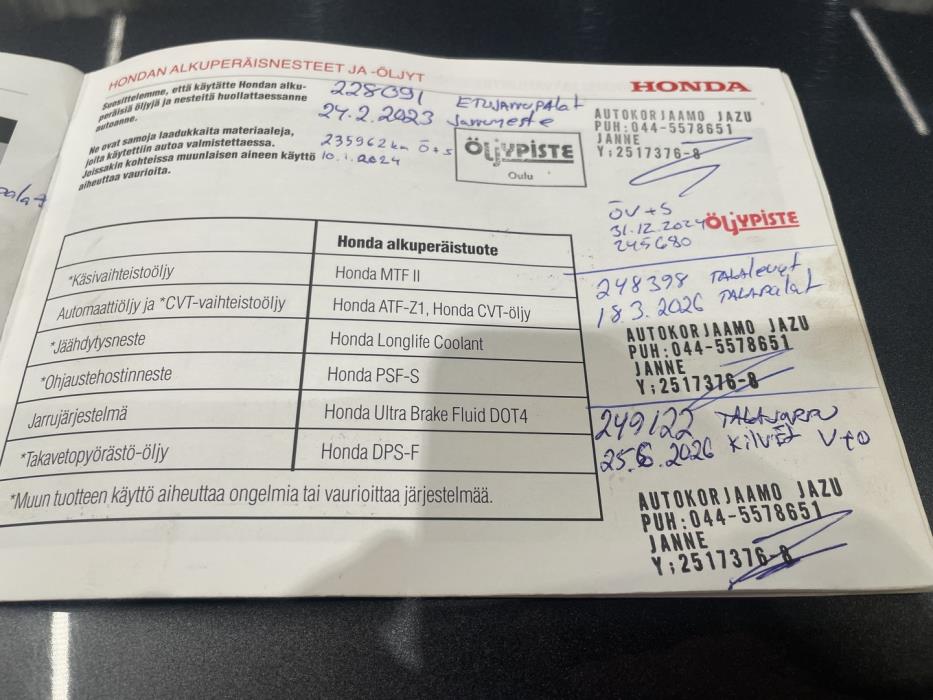 HONDAN ALKUPERÄISNESTEET JA -ÖLJYT
HONDA
Suosittelemme, että käytätte Hondan alku-
peräisiä öljyjä ja nesteitä huollattaessanne
autoanne.
Ne ovat samoja laadukkaita materiaaleja,
joita käytettiin autoa valmistettaessa.
Joissakin kohteissa muunlaisen aineen käyttö
aiheuttaa vaurioita.
228091
27.2.2023
ETUJARRUPALAT
Jarruneste
235962 km Ö+S
10.1.2024
ÖLJYPISTE
Oulu
AUTOKORJAAMO JAZU
PUH:044-5578651
JANNE
Y:2517376-8
ÖV+S
31.12.2024
245680
ÖLJYPISTE
248398 TAKALevyt
18.3.2026 TAKAPalat
AUTOKORJAAMO JAZU
PUH:044-5578651
JANNE
Y:2517376-8
249122 TAKAJARRU
25.6.2026 KILVET V+O
AUTOKORJAAMO JAZU
PUH:044-5578651
JANNE
Y:2517376-8
Honda alkuperäistuote
*Käsivaihteistoöljy Honda MTF II
Automaattiöljy ja *CVT-vaihteistoöljy Honda ATF-Z1, Honda CVT-öljy
*Jäähdytysneste Honda Longlife Coolant
*Ohjaustehostinneste Honda PSF-S
Jarrujärjestelmä Honda Ultra Brake Fluid DOT4
*Takavetopyörästö-öljy Honda DPS-F
*Muun tuotteen käyttö aiheuttaa ongelmia tai vaurioittaa järjestelmää.